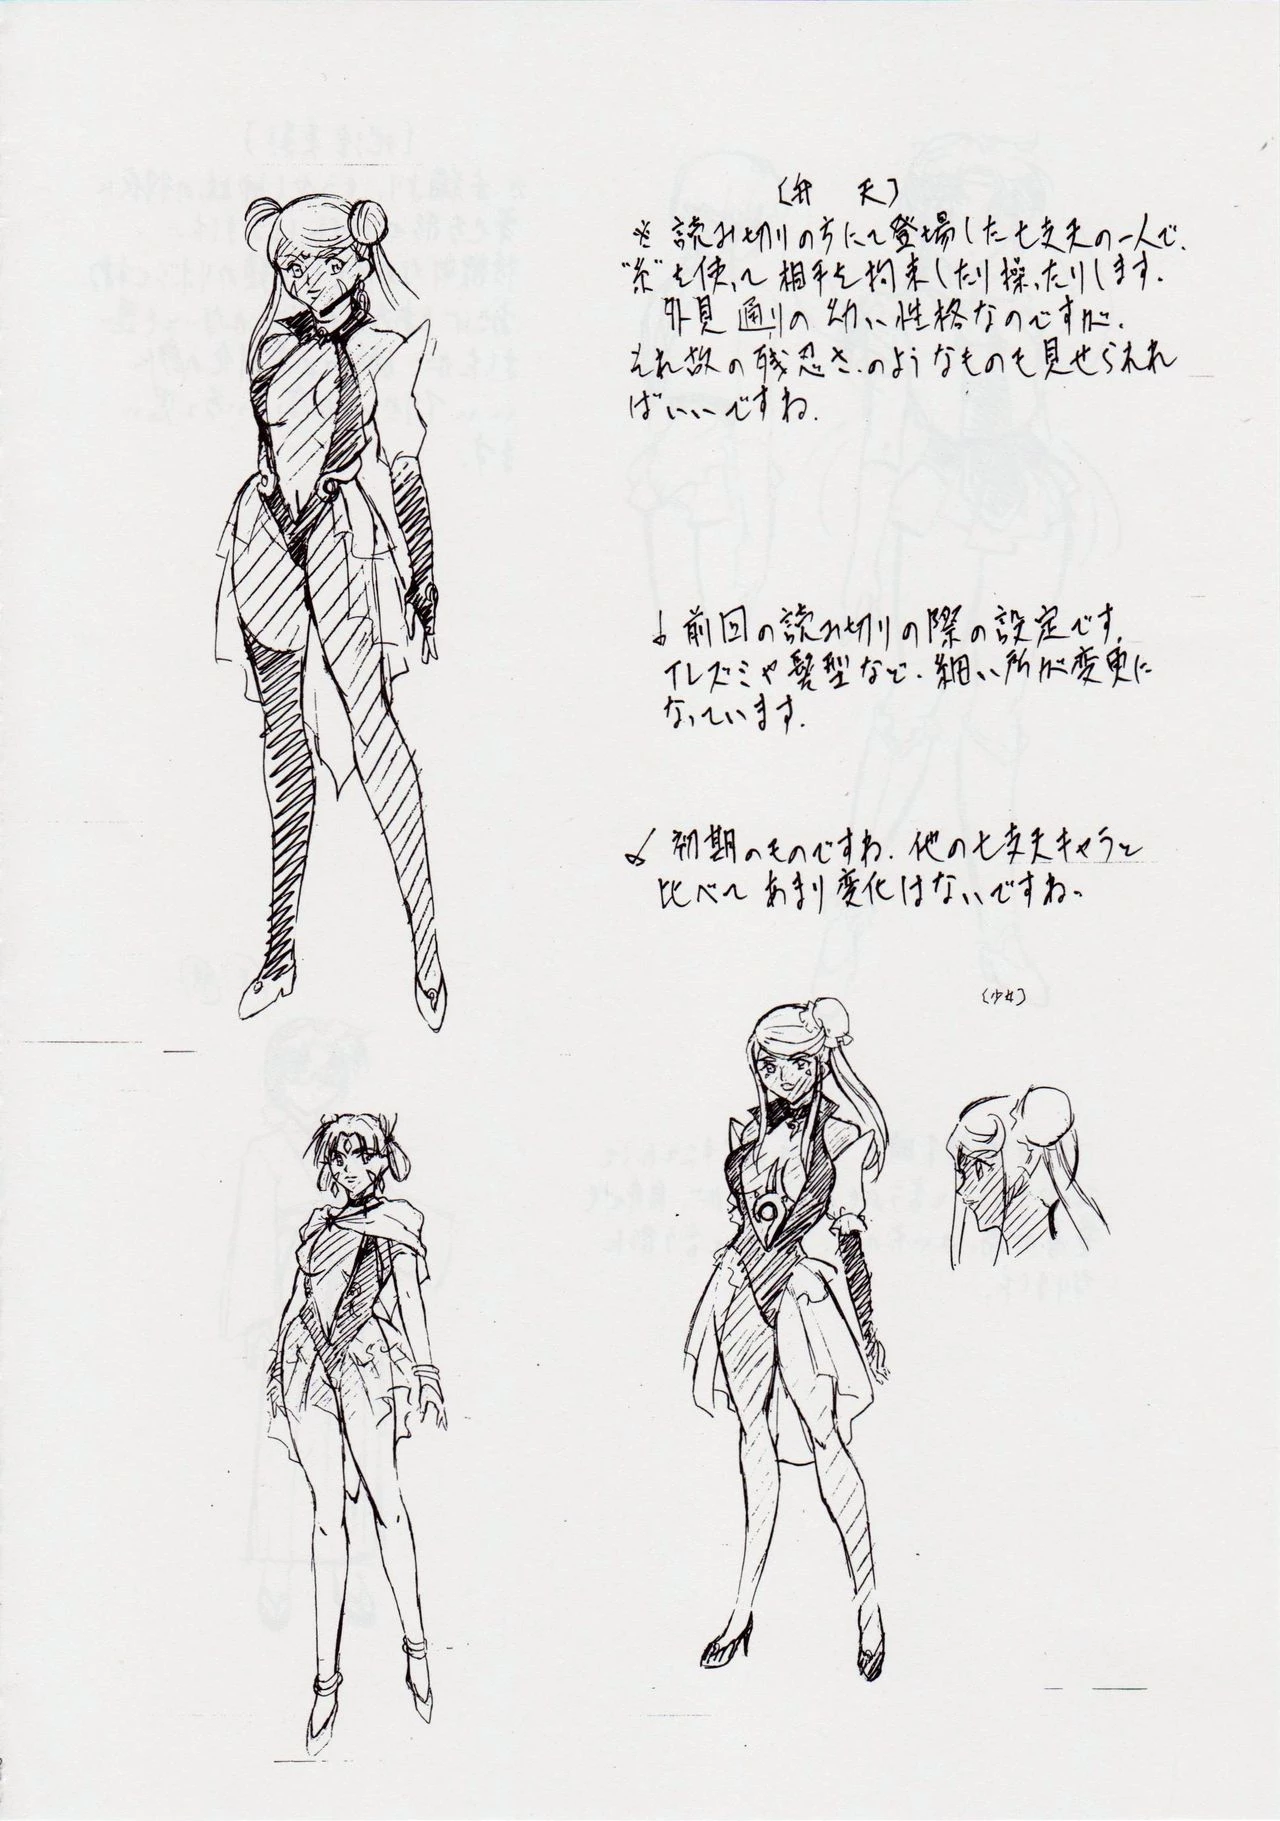 〔弁 天〕
※ 読み切りの方にて登場した七丈夫の一人で、
"糸"を使って相手を拘束したり操ったりします.
外見通りの幼い性格なのですが、
それ故の残忍さ、のようなものも見せられれ
ばいいですね.
前回の読み切りの際の設定です.
イレズミや髪型など、細い所が変更に
なっています.
初期のものですね. 他の七丈夫キャラと
比べて あまり変化はないですね〜
〔少女〕